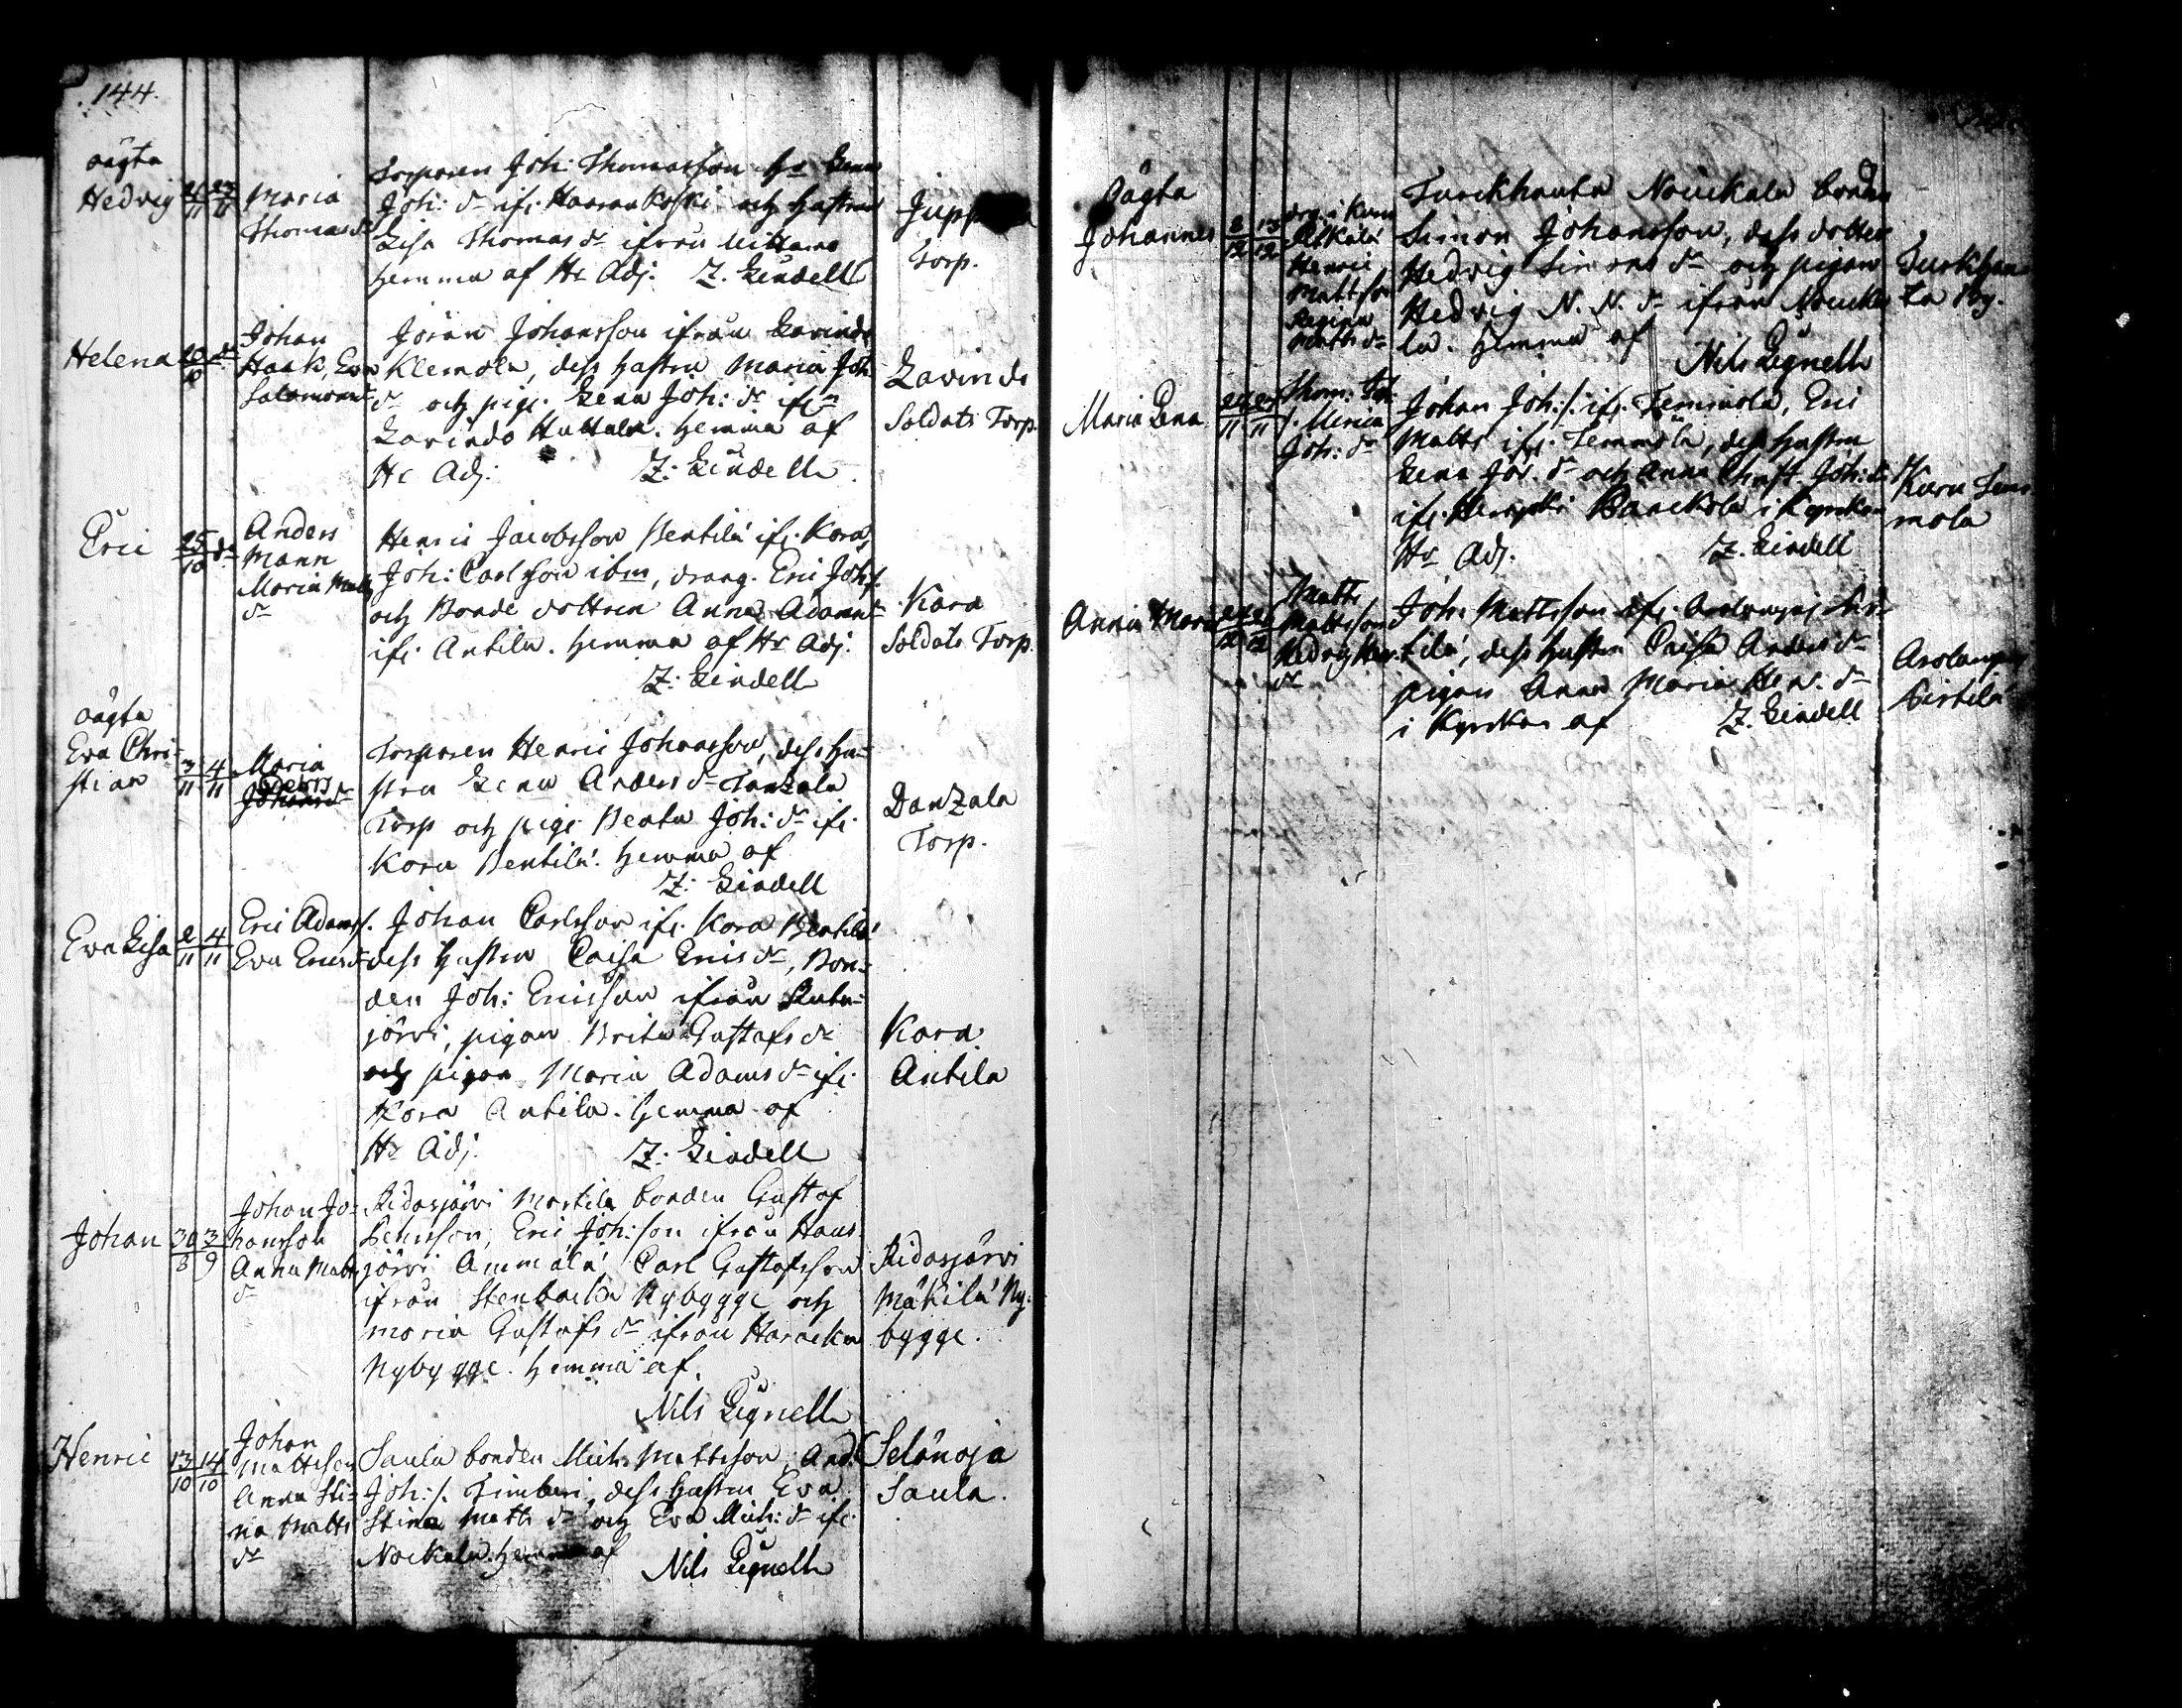 144.
oägta
Hedvig 21/11 23/11
Maria
Thomas dr
Torparen Joh: Thomasson hs
Joh: dr ifr. Haarankoski och hustrun
Lisa Thomas dr ifrån
hemma af Hr Adj. Z. Lindell
Torp.
Helena 20/10 do
Johan
Haak, Eva
Salomons dr
Jöran Johansson ifrån Lavinda
Klemola, dess hustru Maria Joh:
dr och pig. Lena Joh: dr ifrn
Lavindo Huttala. hemma af
Hr Adj. Z: Lindell
Lavindo
Soldats Torp
Eric 25/10 do
Anders
Mann
Maria Matts
dr
Henric Jacobsson Pentilä ifr. Kara,
Joh: Carlsson ibm, dräng. Eric Joh: s.
och Bonde dottren Anna Adams dr
ifr. Antila. hemma af Hr Adj.
Z: Lindell
Kara
Soldats Torp.
oägta
Eva Chri-
stian 3/11 4/11
Maria
Johans dr
Torparen Henric Johansson, dess hu-
stru Lena Anders dr Tanzala
Torp och pige Beata Joh: dr ifr.
Kara Pentilä. hemma af
Z: Lindell
Danzala
Torp.
Eva Lisa 2/11 4/11
Eric Adams s.
Eva Erics dr
Johan Carlsson ifr. Kara Pentilä
dess hustru Caisa Erics dr, Bon-
den Joh: Ericsson ifrån
järvi, pigan Brita Gustafs dr
och pigan Maria Adams dr ifr.
Kara Antila. hemma af
Hr Adj. Z: Lindell
Kara
Antila
Johan 30/8 3/9
Johan Jo-
hansson
Anna Matts
dr
Ridasjärvi Mortila bonden Gustaf
Eric Joh: son ifrån Haus-
järvi Ammälä Carl Gustafsson
ifrån Stenbacka Nybygge och
Maria Gustafs dr ifrån Haracka
Nybygge. hemma af.
Nils Lignell
Ridasjärvi
Mäkilä Ny-
bygge.
Henric 13/10 14/10
Johan
Mattsson
Anna Sti-
na Matts
dr
Saula bonden Mich: Mattsson, And:
Joh: s. Timberi, dess hustru Eva
Stina Matts dr och Eva Mich: dr ifr.
Nockala. hemma af
Nils Lignell
Selänoja
Saula.
Oägta
Johannes 8/12 13/12
Henric
Mattsson
Regina
Matts dr
Turckhauta Nouckala bonden
Simon Johansson, dess dotter
Hedvig Simons dr och pigan
Hedvig N. N. dr ifrån Noucka-
la. hemma af
Nils Lignell
Turkhau-
ta By.
Maria Lena
Thom: Joh:
s. Maria
Joh: dr
Johan Joh: s. ifr. Temmola, Eric
Matts s ifr. Temmola, dess hustru
Lena Jör. dr och Anna Christ. Joh: dr
ifr. Banckola i Kyrckan
Hr Adj. Z. Lindell
Kara Tem-
mola
Anna Maria
Matts
Mattsson
Hedvig Hen.
dr
Joh: Mattsson ifr.
tilä, dess hustru Caisa Anders dr
pigan Anna Maria Hen. dr
i Kyrckan af Z. Lindell